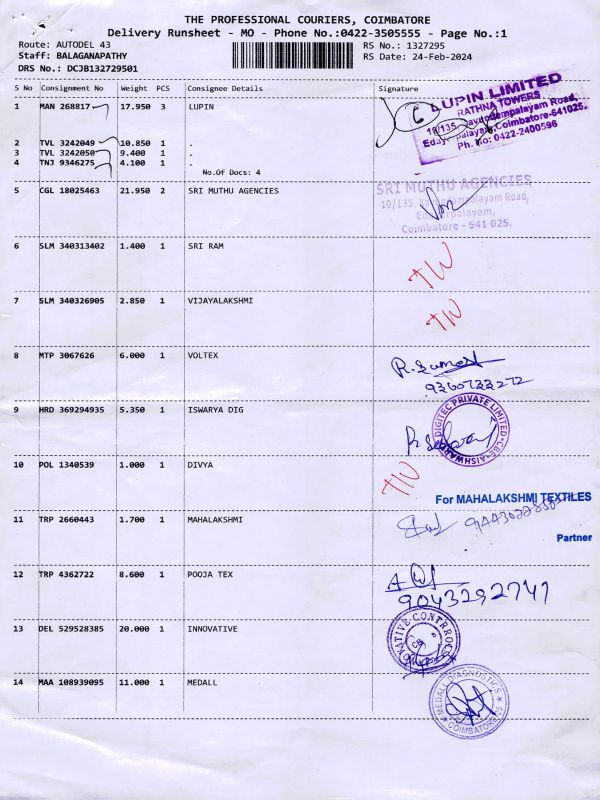 THE PROFESSIONAL COURIERS, COIMBATORE
Delivery Runsheet - MO - Phone No.:0422-3505555 - Page No.:1
Route: AUTODEL 43
RS No.: 1327295
Staff: BALAGANAPATHY
RS Date: 24-Feb-2024
DRS No.: DCJB132729501
S No Consignment No Weight PCS Consignee Details Signature
1 MAN 268817 17.950 3 LUPIN
LUPIN LIMITED
RATHNA TOWERS
Coimbatore-641025.
Ph. No: 0422-2400596
2 TVL 3242049 10.850 1 .
3 TVL 3242050 9.400 1 .
4 TNJ 9346275 4.100 1 .
No.Of Docs: 4
5 CGL 18025463 21.950 2 SRI MUTHU AGENCIES
SRI MUTHU AGENCIES
10/135, Road,
Coimbatore - 641 025.
6 SLM 340313402 1.400 1 SRI RAM
7 SLM 340326905 2.850 1 VIJAYALAKSHMI
8 MTP 3067626 6.000 1 VOLTEX
9 HRD 369294935 5.350 1 ISWARYA DIG
DIGITEC PRIVATE LIMITED
10 POL 1340539 1.000 1 DIVYA
For MAHALAKSHMI TEXTILES
11 TRP 2660443 1.700 1 MAHALAKSHMI
Partner
12 TRP 4362722 8.600 1 POOJA TEX
90432 92747
13 DEL 529528385 20.000 1 INNOVATIVE
14 MAA 108939095 11.000 1 MEDALL
MEDALL DIAGNOSTICS
COIMBATORE